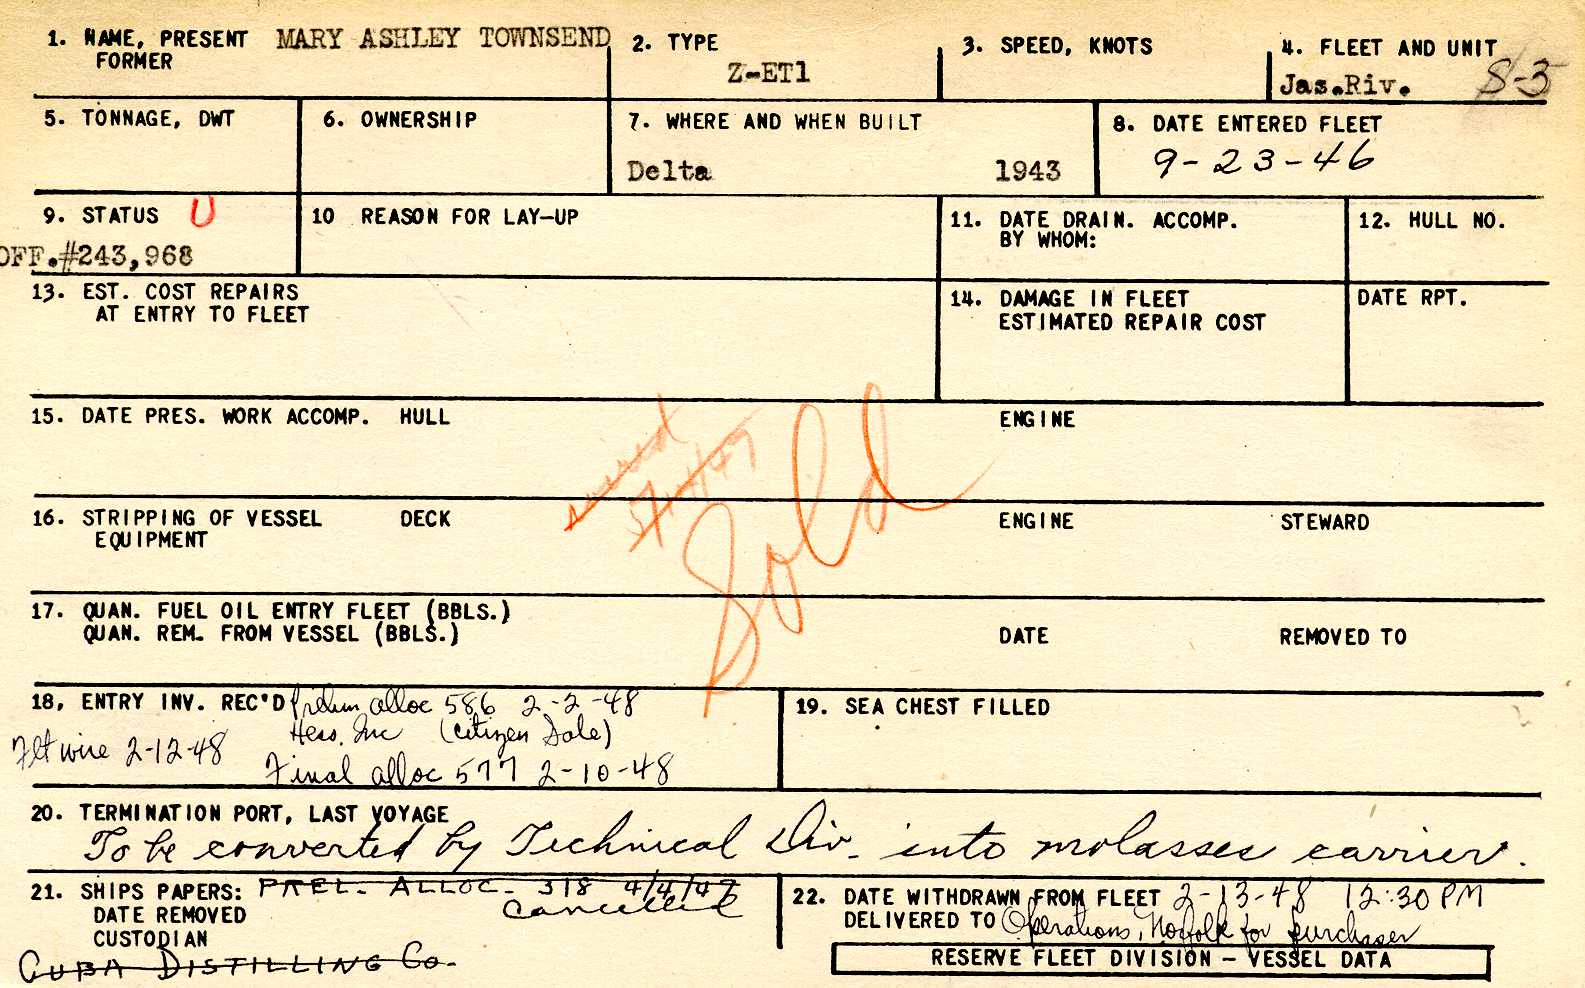 1. NAME, PRESENT MARY ASHLEY TOWNSEND
FORMER
2. TYPE
Z-ET1
3. SPEED, KNOTS
4. FLEET AND UNIT
Jas.Riv. S-3
5. TONNAGE, DWT
6. OWNERSHIP
7. WHERE AND WHEN BUILT
Delta 1943
8. DATE ENTERED FLEET
9-23-46
9. STATUS U
OFF.#243,968
10 REASON FOR LAY-UP
11. DATE DRAIN. ACCOMP.
BY WHOM:
12. HULL NO.
13. EST. COST REPAIRS
AT ENTRY TO FLEET
14. DAMAGE IN FLEET
ESTIMATED REPAIR COST
DATE RPT.
15. DATE PRES. WORK ACCOMP. HULL ENGINE
Sold
16. STRIPPING OF VESSEL DECK ENGINE STEWARD
EQUIPMENT
17. QUAN. FUEL OIL ENTRY FLEET (BBLS.)
QUAN. REM. FROM VESSEL (BBLS.) DATE REMOVED TO
18, ENTRY INV. REC'D Prelim alloc 586 2-2-48
Hess, Inc (Citizen Sale)
Flt wire 2-12-48 Final alloc 577 2-10-48
19. SEA CHEST FILLED
20. TERMINATION PORT, LAST VOYAGE
To be converted by Technical Div. into molasses carrier.
21. SHIPS PAPERS: PREL. ALLOC. 318 4/4/47
DATE REMOVED cancelled
CUSTODIAN
CUBA DISTILLING Co.
22. DATE WITHDRAWN FROM FLEET 2-13-48 12:30 PM
DELIVERED TO Operations, Norfolk for purchaser
RESERVE FLEET DIVISION – VESSEL DATA